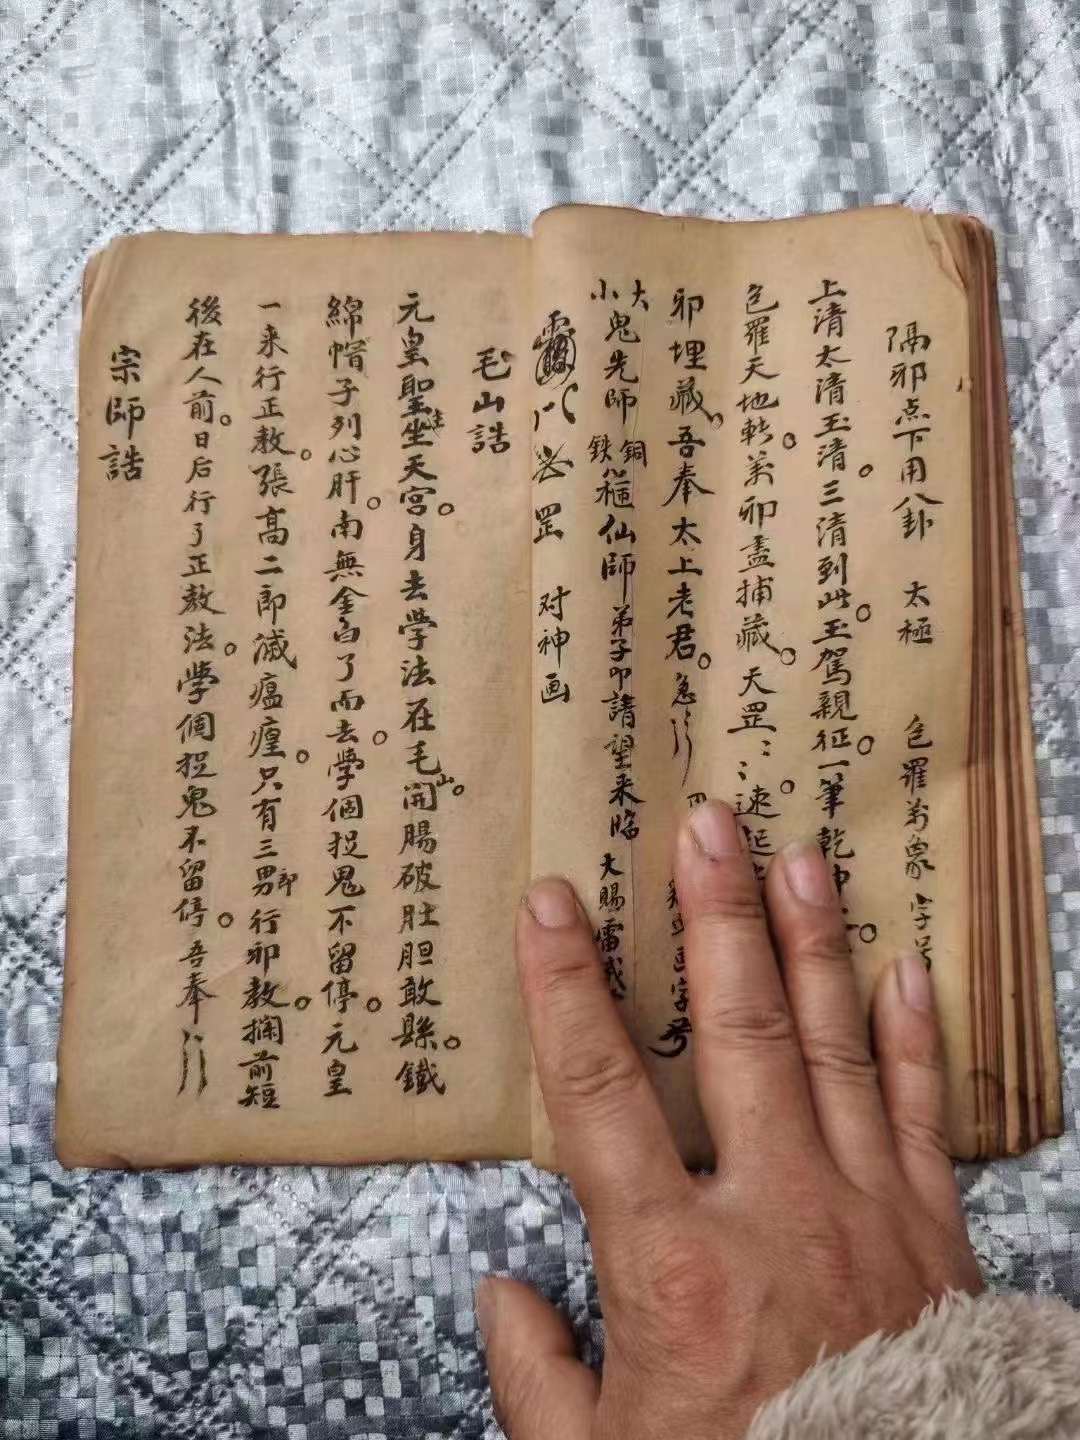 隔邪点下用八卦 太極 包羅万象字号
上清太清玉清。三清到此。玉駕親征。一筆乾坤
包羅天地転。萬卯盡捕藏。天罡ミミ速起
邪埋藏。吾奉太上老君。急 画字号
大小鬼先師銅鉄 仙師弟子叩請望来臨 大賜雷威
罡 对神画
毛山誥
元皇聖主坐天宮。身去學法在毛山。開腸破肚胆敢縣。鐵
綿帽子列心肝。南無金 了而去。學個捉鬼不留停。元皇
一来行正教。張高二郎滅瘟瘟。只有三男郎行邪教。攔前短
後在人前。日后行了正教法。學個捉鬼不留停。吾奉
宗師誥